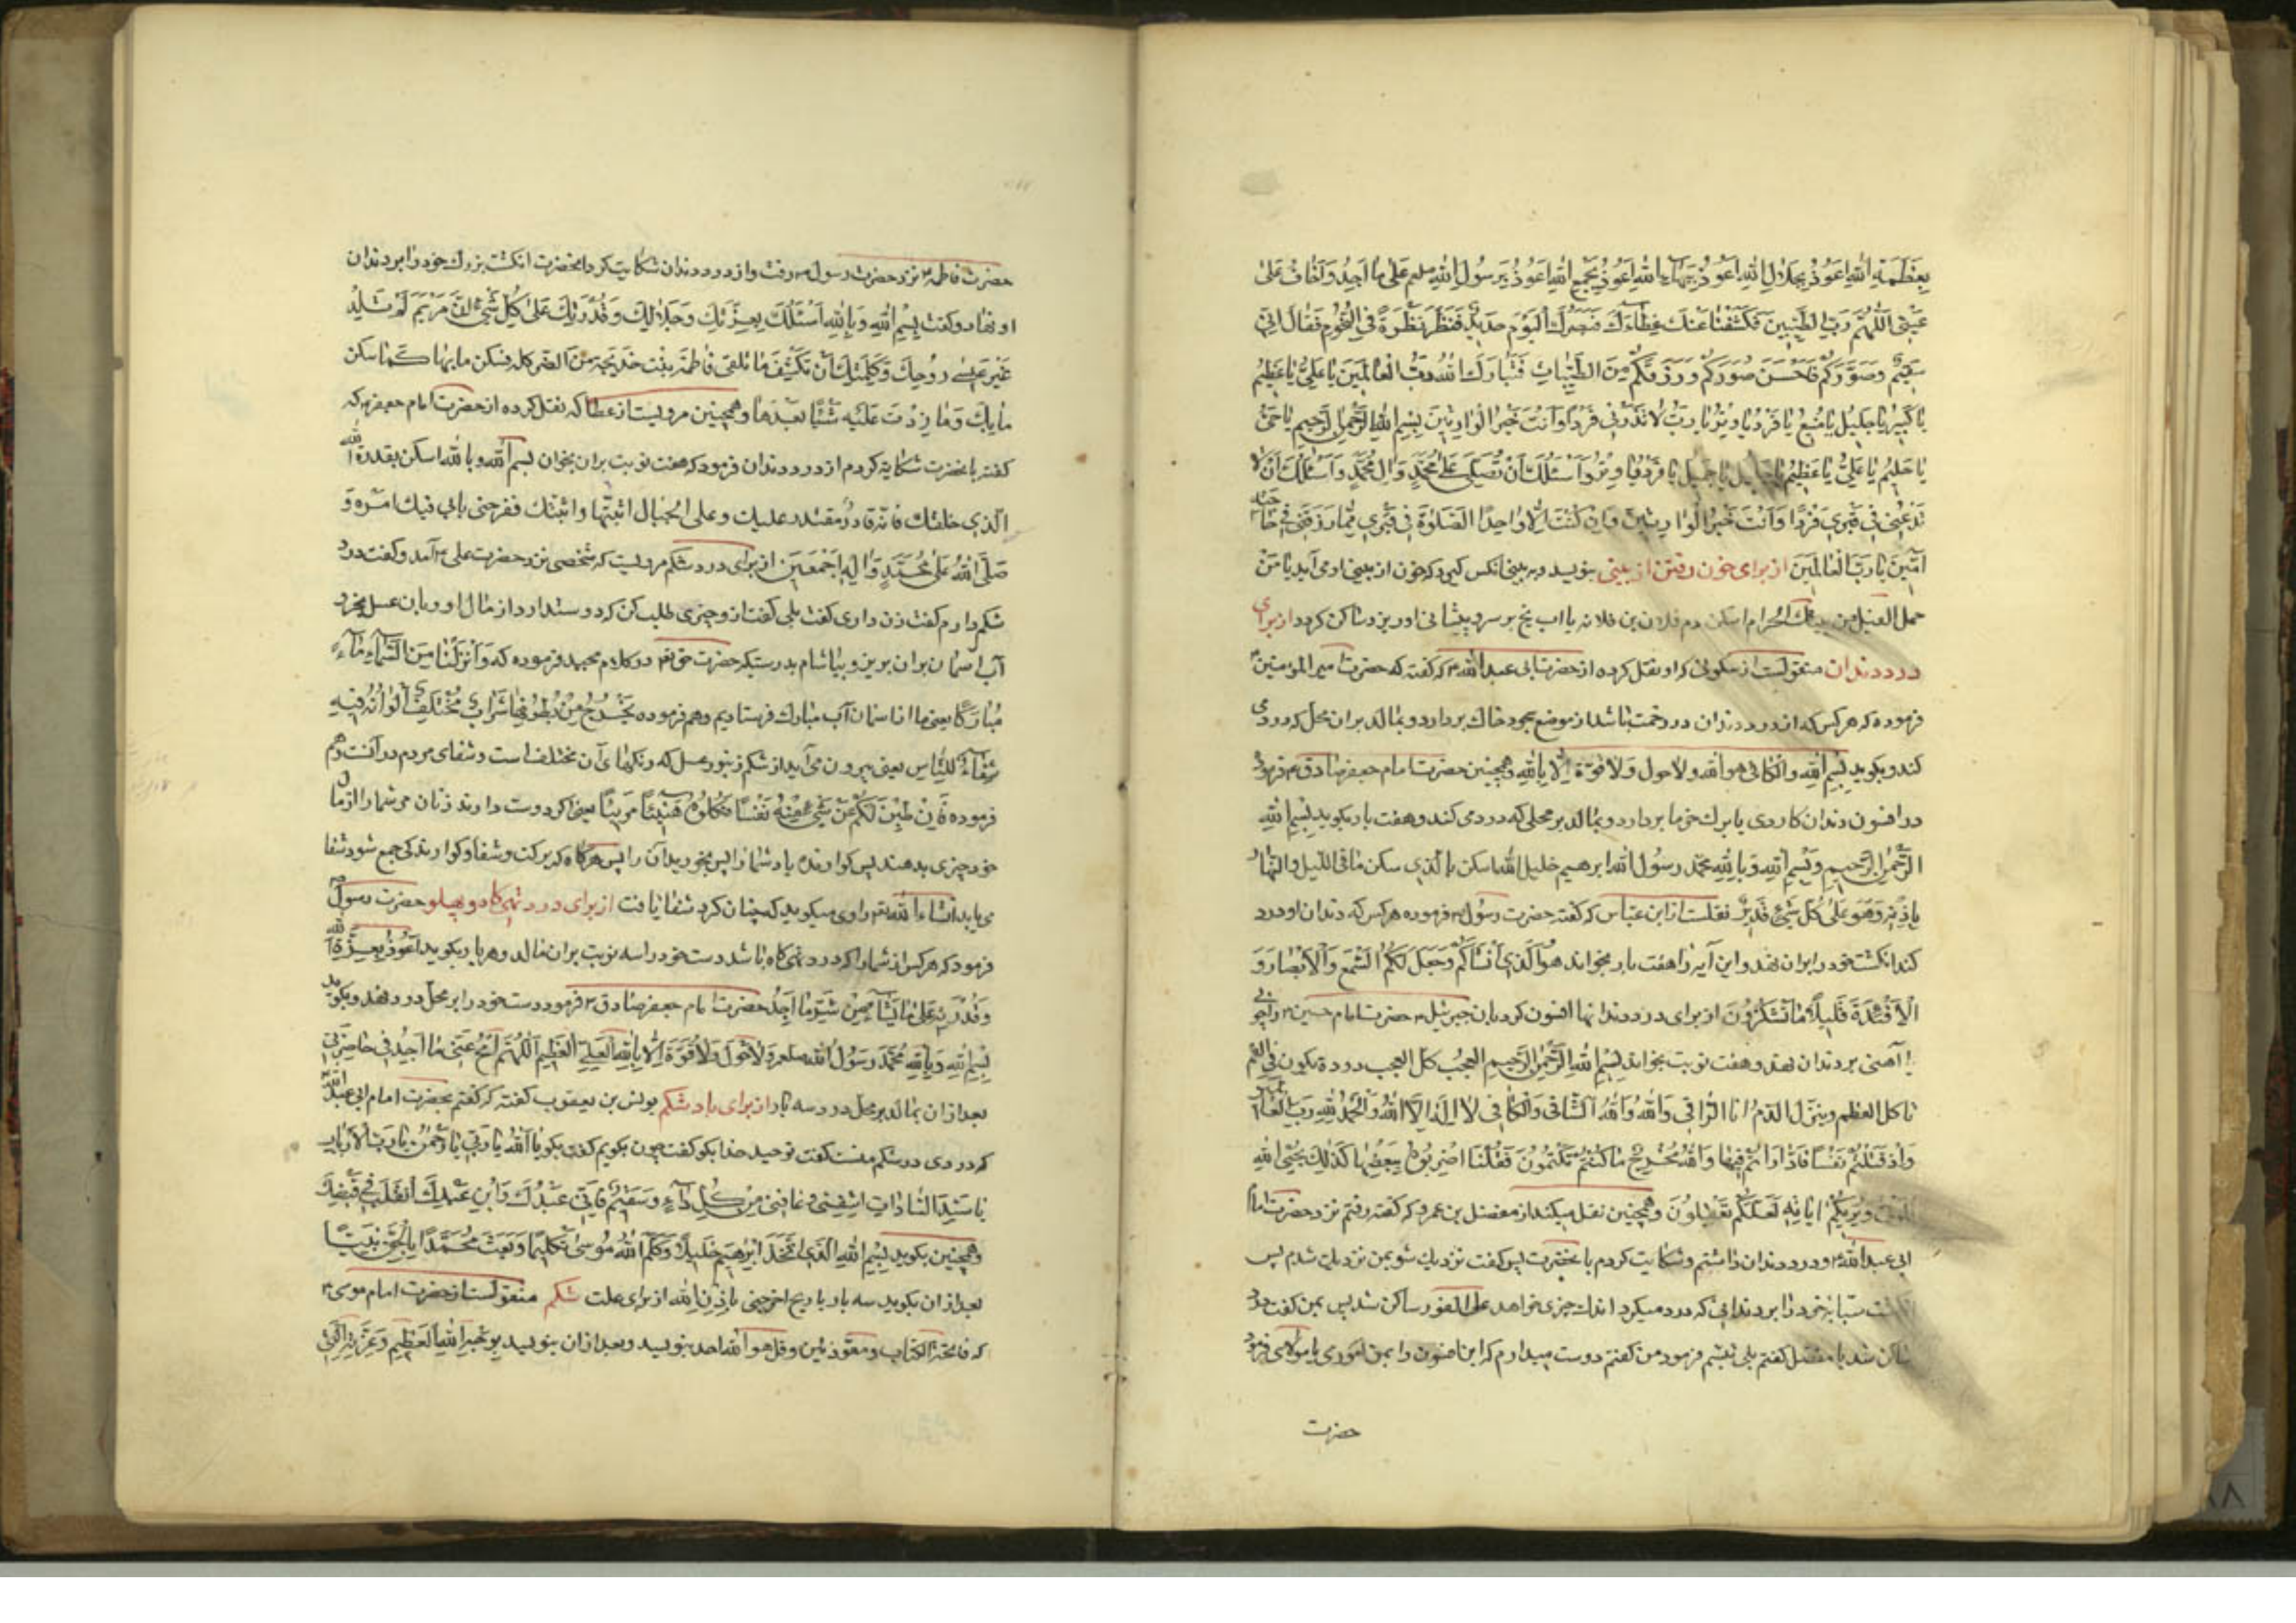 بِعَظَمَةِ اللّٰهِ اَعُوذُ بِجَلَالِ اللّٰهِ اَعُوذُ بِبَهَآءِ اللّٰهِ اَعُوذُ بِجَمْعِ اللّٰهِ اَعُوذُ بِرَسُولِ اللّٰهِ صلعم عَلىٰ مَا اَجِدُ وَ اَخَافُ عَلىٰ
عَيْنِى اَللّٰهُمَّ رَبَّ الطَّيِّبِينَ فَكَشَفْنٰا عَنْكَ غِطٰآءَكَ فَبَصَرُكَ الْيَوْمَ حَدِيدٌ فَنَظَرَ نَظْرَةً فِى النُّجُومِ فَقٰالَ اِنِّى
سَقِيمٌ وَصَوَّرَكُمْ فَاَحْسَنَ صُوَرَكُمْ وَرَزَقَكُمْ مِنَ الطَّيِّبٰاتِ فَتَبٰارَكَ اللّٰهُ رَبُّ الْعٰالَمِينَ يٰا عَلِىُّ يٰا عَظِيمُ
يٰا كَبِيرُ يٰا جَلِيلُ يٰا مَنِيعُ يٰا فَرْدُ يٰا وِتْرُ يٰا رَبُّ لٰا تَذَرْنِى فَرْدًا وَاَنْتَ خَيْرُ الْوٰارِثِينَ بِسْمِ اللّٰهِ الرَّحْمٰنِ الرَّحِيمِ يٰا حَىُّ
يٰا حَلِيمُ يٰا عَلِىُّ يٰا عَظِيمُ يٰا جَلِيلُ يٰا جَمِيلُ يٰا فَرْدُ يٰا وِتْرُ اَسْئَلُكَ اَنْ تُصَلِّىَ عَلىٰ مُحَمَّدٍ وَ اٰلِ مُحَمَّدٍ وَ اَسْئَلُكَ اَنْ لٰا
تَدَعَنِى فِى قَبْرِى فَرْدًا وَاَنْتَ خَيْرُ الْوٰارِثِينَ وَاِنْ كُنْتَ الصَّلٰوةَ فِى قَبْرِى
اٰمِينَ يٰا رَبَّ الْعٰالَمِينَ از برای خون رفتن از بینی بنویسد و بر بینی انکس کیرد که خون از بینی او می آید یا مَنْ
حمل الفیل من بیتك الحرام اسکن دم فلان بن فلانه یا اب یخ بر سر و پیشانی او ریزد ساکن کردد از برای
درد دندان منقولست از سکونی که او نقل کرده از حضرت ابی عبد الله ع که کفته که حضرت امیر المؤمنین ع
فرموده که هر کس که از درد دندان در زحمت باشد از موضع سجود خاك بردارد و بمالد بران محل که درد می
کند و بکوید بسم الله والکافى هو الله ولا حول وَلا قوّة اِلّا بِاللّٰهِ وهمچنین حضرت امام جعفر صادق ع فرموده
در افسون دندان کاردی یا برك خرما بردارد و بمالد بر محلی که درد می کند و هفت بار بکوید بِسْمِ اللّٰهِ
الرَّحْمٰنِ الرَّحِيمِ وَبِسْمِ اللّٰهِ وَبِاللّٰهِ محمّد رسول الله ابرهیم خلیل الله اسکن بالّذى سکن ما فى اللّیل والنّهار
بِاِذْنِهِ وَهُوَ عَلىٰ كُلِّ شَىْءٍ قَدِيرٌ نقلست از ابن عبّاس که کفته حضرت رسول ص فرموده هر کس که دندان او درد
کند انکشت خود را بران نهد و این آیه را هفت بار بخواند هُوَ الَّذِى اَنْشَاَكُمْ وَجَعَلَ لَكُمُ السَّمْعَ وَالْاَبْصٰارَ وَ
الْاَفْئِدَةَ قَلِيلًا مٰا تَشْكُرُونَ از برای درد دندانها افسون کرد بان جبرئیل ع حضرت امام حسین ع را چو
با آهنی بر دندان نهد و هفت نوبت بخواند بِسْمِ اللّٰهِ الرَّحْمٰنِ الرَّحِيمِ العجب کل العجب دودة تکون فى الفم
تاکل العظم وینزل الدم انا الرّاقى وَاللّٰهُ الشّافى وَالکافى لا اِلٰهَ اِلَّا اللّٰهُ وَالْحَمْدُ لِلّٰهِ رَبِّ الْعٰالَمِينَ
وَاِذْ قَتَلْتُمْ نَفْسًا فَادّٰارَأْتُمْ فِيهٰا وَاللّٰهُ مُخْرِجٌ مٰا كُنْتُمْ تَكْتُمُونَ فَقُلْنَا اضْرِبُوهُ بِبَعْضِهٰا كَذٰلِكَ يُحْيِى اللّٰهُ
الْمَوْتىٰ وَيُرِيكُمْ اٰيٰاتِهِ لَعَلَّكُمْ تَعْقِلُونَ وهمچنین نقل میکند از مفضل بن عمرو که کفته رفتم نزد حضرت امام
ابی عبد الله ع و درد دندان داشتم وشکایت کردم با نحضرت پس کفت نزدیك شو بمن نزدیك شدم پس
سبّابهٔ خود را بر دندانی که درد میکرد اندك چیزی خواهد على الفور ساکن شد پس بمن کفت درد
ساکن شد یا مفضل کفتم بلی تبسّم فرمود من کفتم دوست میدارم که این افسون را بمن اموزی یا مولای فرمود
حضرت
حضرت فاطمه ع نزد حضرت رسول ص رفت واز درد دندان شکایت کرد انحضرت انکشت بزرك خود را بر دندان
او نهاد وکفت بِسْمِ اللّٰهِ وَ بِاللّٰهِ اَسْئَلُكَ بِعِزَّتِكَ وَجَلٰالِكَ وَقُدْرَتِكَ عَلىٰ كُلِّ شَىْءٍ اِنَّ مَرْيَمَ لَمْ تَلِدْ
غَيْرَ عِيسىٰ رُوحِكَ وَكَلِمَتِكَ اَنْ تَكْشِفَ مٰا تلقى فٰاطِمَةُ بِنْتُ خَدِيجَةَ مِنَ الضّر کله فسکن ما بها کما سکن
مٰا بِكَ وَمٰا زِدْتَ عَلَيْهِ شَيْئًا بَعْدَهٰا وهمچنین مرویست از عطا که نقل کرده از حضرت امام جعفر ع که
کفته بانحضرت شکایة کردم از درد دندان فرمود که هفت نوبت بران بخوان بسم الله وبالله اسکن بقدرة الله
الّذى خلقك فانه قادرٌ مقتدر علیك وعلى الجبال اثبتها واثبتك فقر حتى یاتى فیك امره وَ
صَلَّى اللّٰهُ عَلىٰ مُحَمَّدٍ وَاٰلِهِ اَجْمَعِينَ از برای درد شکم مرویست که شخصی نزد حضرت علی ع آمد وکفت درد
شکم دارم کفت زن داری کفت بلی کفت از و چیزی طلب کن که دوستدارد از مال او و بان عسل بخرد
آب اسمان بران بریز و بیاشام بدرستیکه حضرت حق تع در کلام مجید فرموده که وَاَنْزَلْنٰا مِنَ السَّمٰاءِ مٰاءً
مُبٰارَكًا یعنی ما از اسمان آب مبارك فرستادیم وهم فرموده يَخْرُجُ مِنْ بُطُونِهٰا شَرٰابٌ مُخْتَلِفٌ اَلْوٰانُهُ فِيهِ
شِفٰاءٌ لِلنّٰاسِ یعنی بیرون می آید از شکم زنبور عسل که رنکهای آن مختلف است و شفای مردم در آنست وهم
فرموده فَاِنْ طِبْنَ لَكُمْ عَنْ شَىْءٍ مِنْهُ نَفْسًا فَكُلُوهُ هَنِيئًا مَرِيئًا یعنی اکر دوست دارند زنان مر شما را از مال
خود چیزی بدهند پس کوارنده باد شما را پس بخورید آن را پس هرکاه که برکت و شفا و کوارندکی جمع شود شفا
می یابد انشاء الله تع راوی میکوید که چنان کرد شفا یافت از برای درد تهی کاه و پهلو حضرت رسول ص
فرمود که هر کس از شما را که درد تهی کاه باشد دست خود را سه نوبت بران مالد و هر بار بکوید اَعُوذُ بِعِزَّةِ اللّٰهِ
وَقُدْرَتِهِ عَلىٰ مٰا يَشٰاءُ مِنْ شَرِّ مٰا اَجِدُ حضرت امام جعفر صادق ع فرمود دست خود را بر محل درد نهد و بکوید
بِسْمِ اللّٰهِ وَبِاللّٰهِ مُحَمَّدٌ رَسُولُ اللّٰهِ صلعم وَلٰا حَوْلَ وَلٰا قُوَّةَ اِلّٰا بِاللّٰهِ الْعَلِىِّ الْعَظِيمِ اَللّٰهُمَّ امْحُ عَنِّى مٰا اَجِدُ فِى خٰاصِرَتِى
بعد از ان بمالد بر محل درد سه بار از برای باد شکم یونس بن یعقوب کفته که کفتم بحضرت امام ابی عبد الله ع
که دردی در شکم منست کفت توحید خدا بکو کفت چون بکویم کفت بکو یٰا اَللّٰهُ یٰا رَبِّى یٰا رَحْمٰنُ یٰا رَبَّ الْاَرْبٰابِ
یٰا سَيِّدَ السّٰادٰاتِ اِشْفِنِى وَعٰافِنِى مِنْ كُلِّ دٰاءٍ وَسَقَمٍ فَاِنِّى عَبْدُكَ وَابْنُ عَبْدِكَ اَتَقَلَّبُ فِى قَبْضَتِكَ
وهمچنین بکوید بِسْمِ اللّٰهِ الَّذِى اتَّخَذَ اِبْرٰهِيمَ خَلِيلًا وَكَلَّمَ اللّٰهُ مُوسىٰ تَكْلِيمًا وَبَعَثَ مُحَمَّدًا بِالْحَقِّ نَبِيًّا
بعد از ان بکوید سه بار یا ریح اخرجى بِاِذْنِ اللّٰهِ از برای علت شکم منقولست از حضرت امام موسی ع
که فاتحة الکتاب ومعوّذتین وقل هو الله احد بنویسد وبعد از ان بنویسد بِوَجْهِ اللّٰهِ الْعَظِيمِ وَعِزَّتِهِ الَّتِى